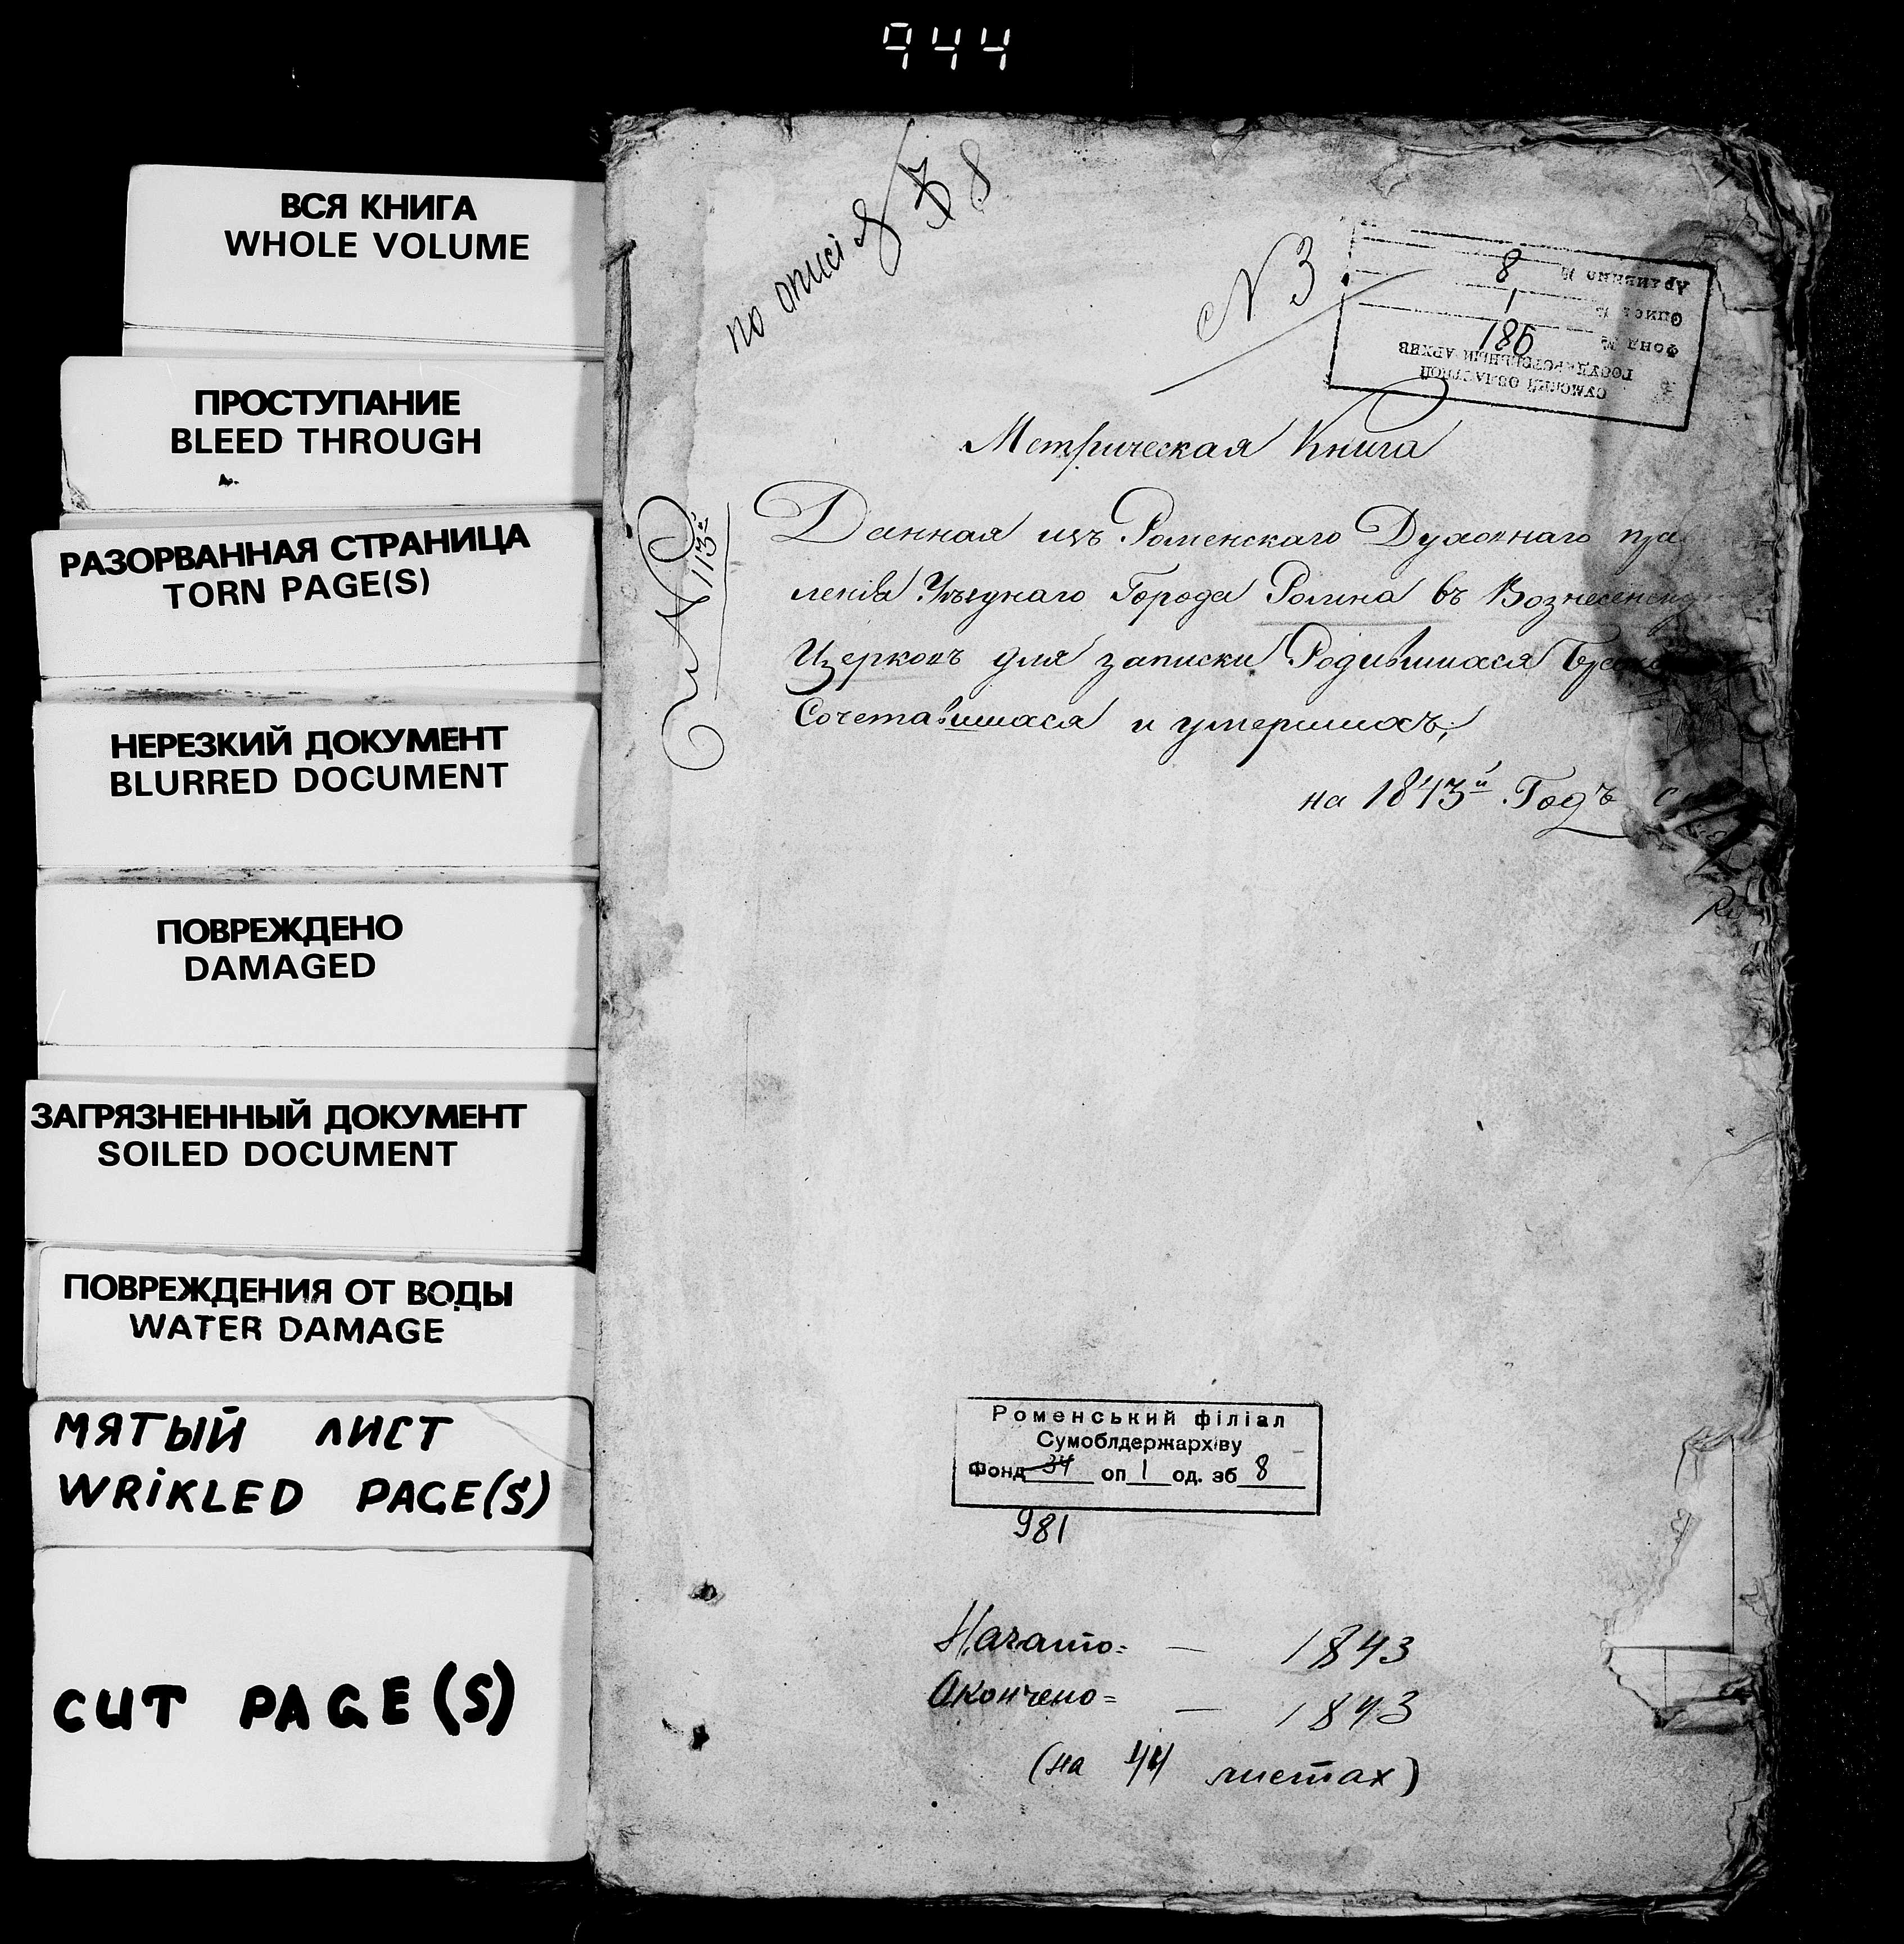 944
ВСЯ КНИГА
WHOLE VOLUME
ПРОСТУПАНИЕ
BLEED THROUGH
РАЗОРВАННАЯ СТРАНИЦА
TORN PAGE(S)
НЕРЕЗКИЙ ДОКУМЕНТ
BLURRED DOCUMENT
ПОВРЕЖДЕНО
DAMAGED
ЗАГРЯЗНЕННЫЙ ДОКУМЕНТ
SOILED DOCUMENT
ПОВРЕЖДЕНИЯ ОТ ВОДЫ
WATER DAMAGE
МЯТЫЙ ЛИСТ
WRIKLED PAGE(S)
CUT PAGE(S)
по описі 8
N 3
СУМСКИЙ ОБЛАСТНОЙ
ГОСУДАРСТВЕННЫЙ АРХИВ
Фонд № 981
Опись № 1
Архивно № 8
N 113й
Метрическая Книга
Данная изъ Роменскаго Духовнаго пра
ленія Уѣзднаго Города Ромна въ Вознесенску
Церковъ для записки Родившихся
Сочетавшихся и умершихъ,
на 1843й Годъ
Роменський філіал
Сумоблдержархіву
Фонд 34 оп 1 од. зб 8
981
Начато= — 1843
Окончено= — 1843
(на 44 листах)